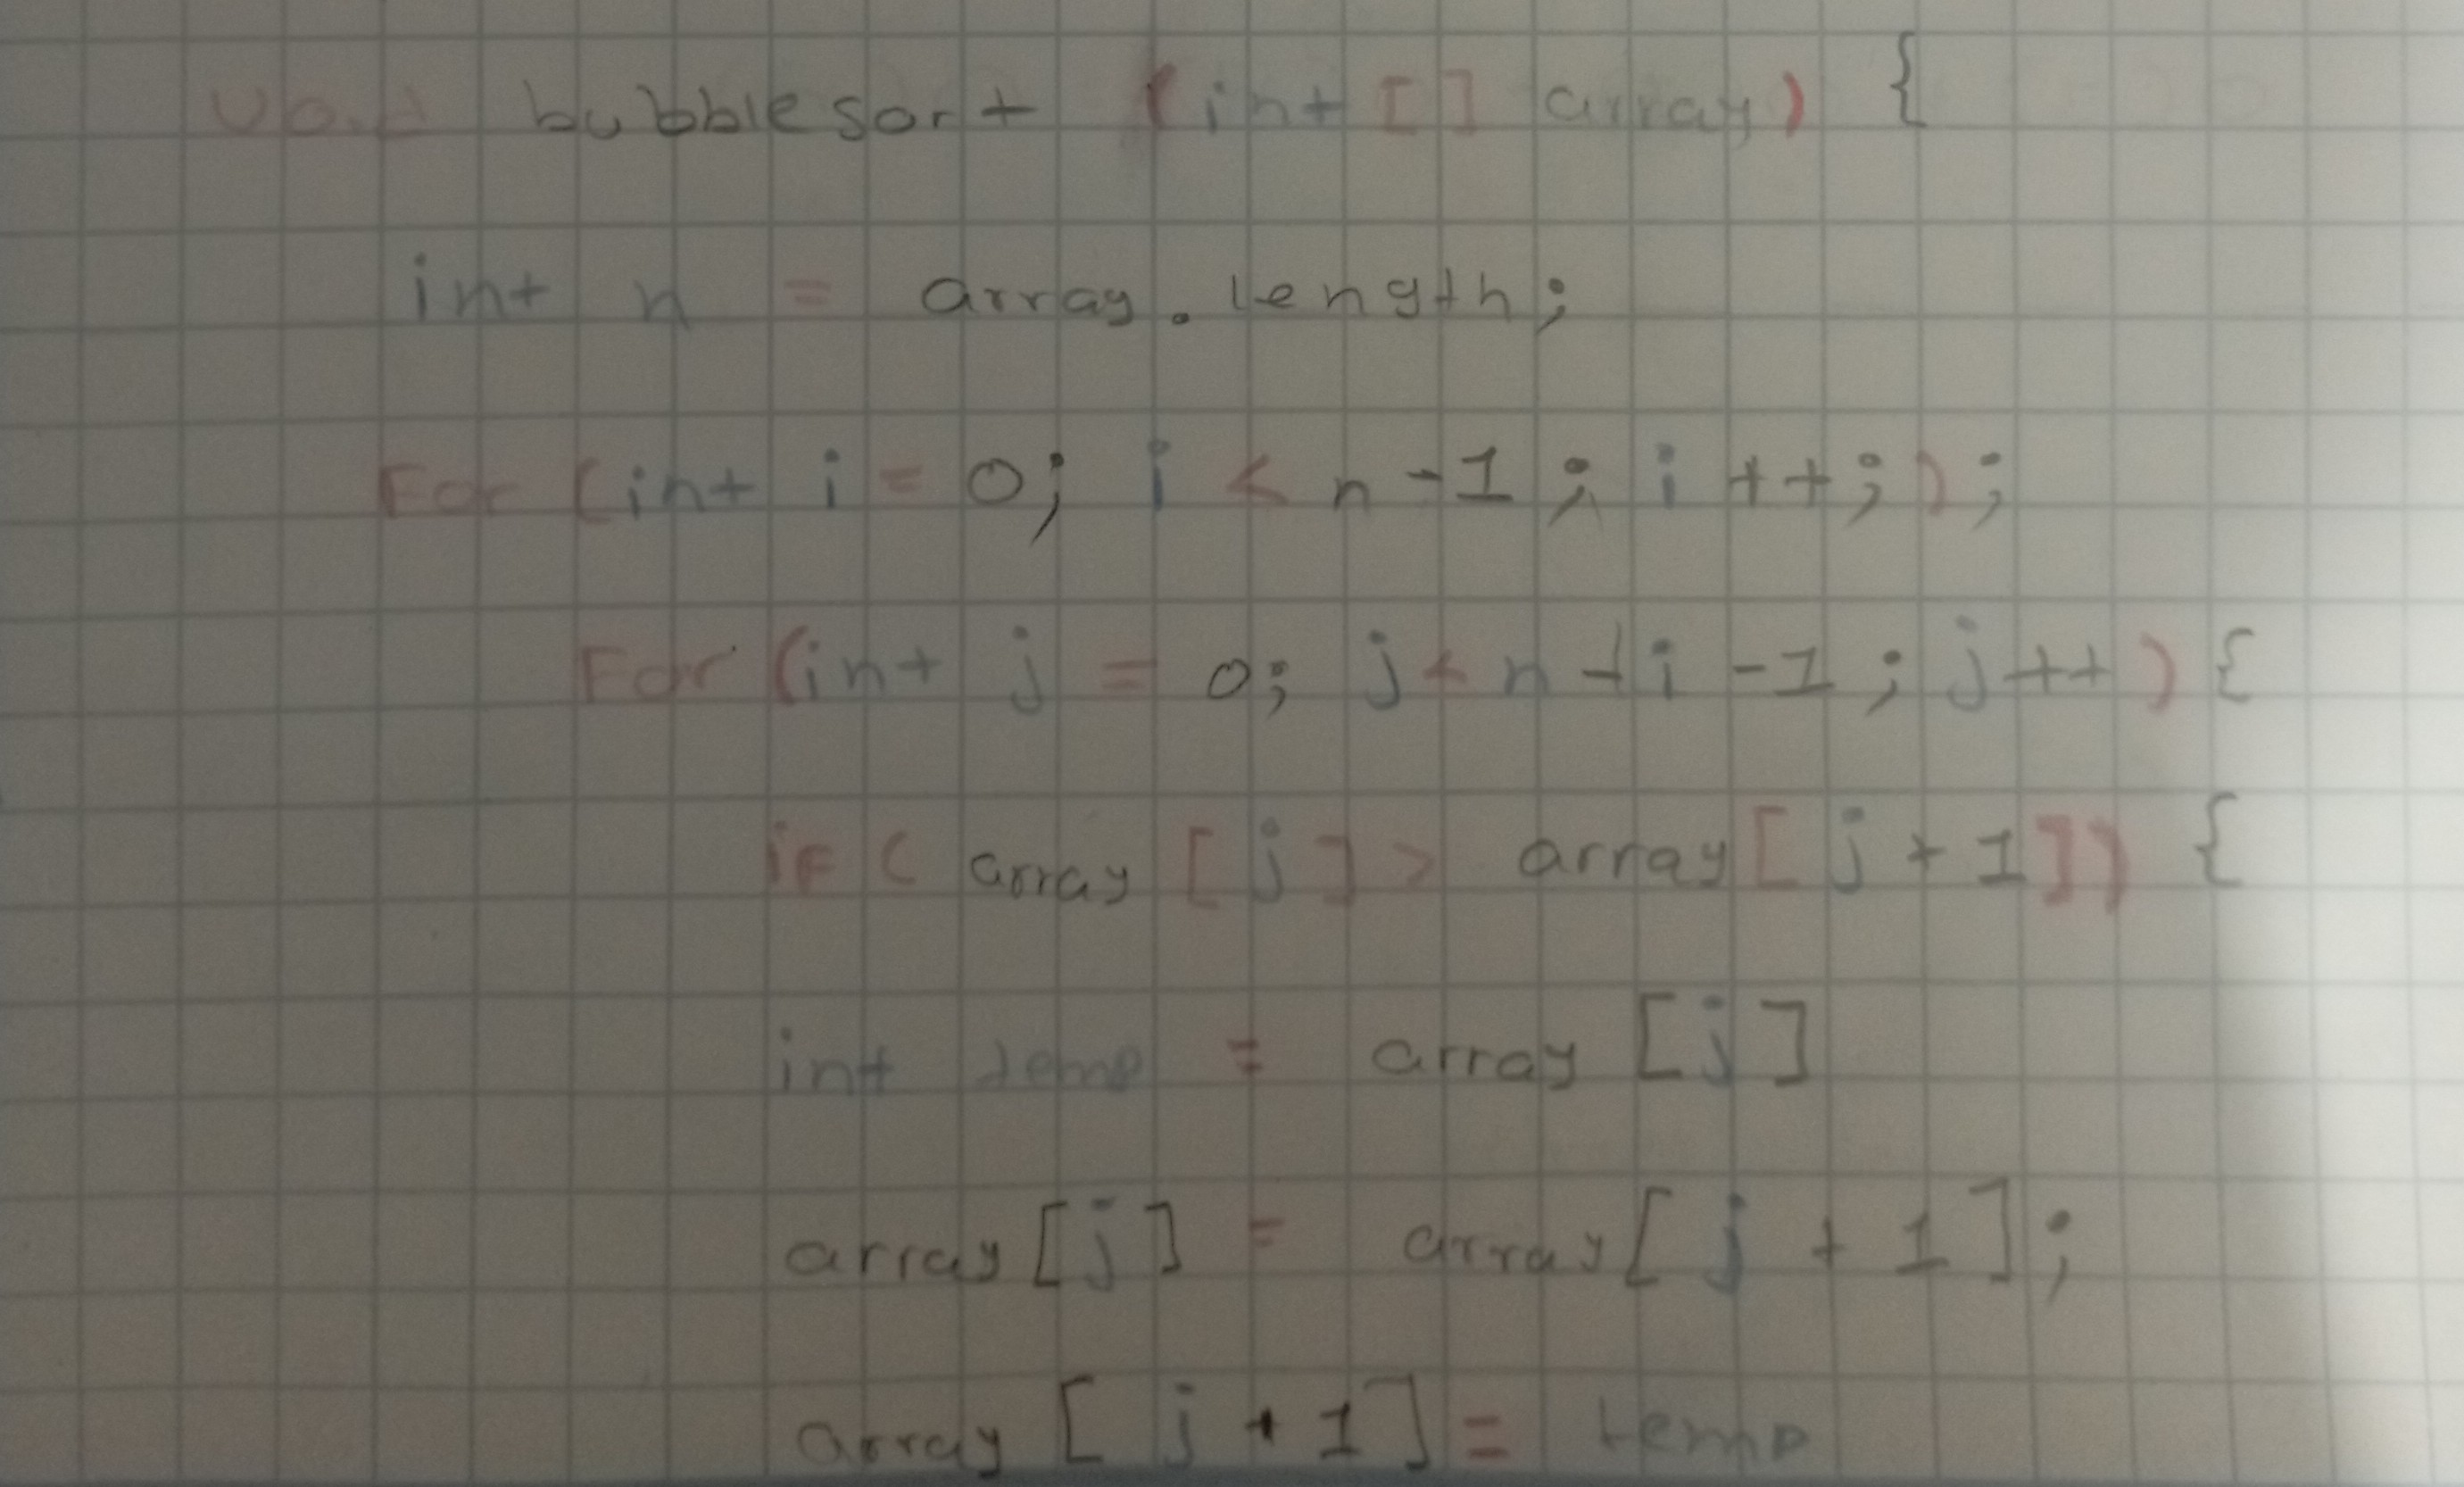 void bubblesort (int [] array) {
int n = array.length;
For (int i = 0; i < n - 1; i ++; );
For (int j = 0; j < n - i - 1; j ++ ) {
if ( array [ j ] > array [ j + 1 ]) {
int temp = array [j]
array [j] = array [ j + 1 ];
array [ j + 1 ] = temp